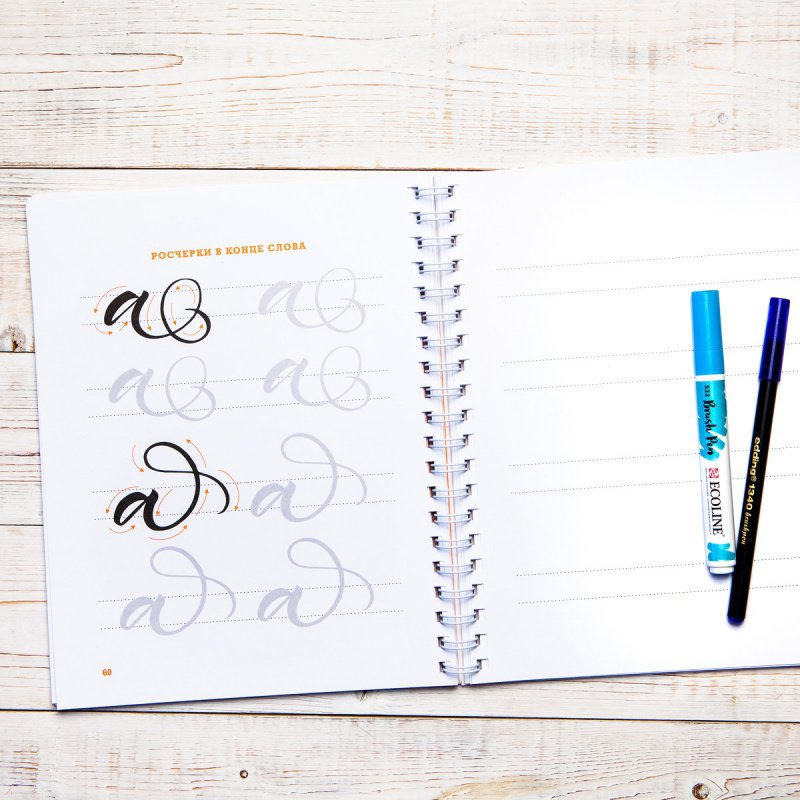 РОСЧЕРКИ В КОНЦЕ СЛОВА
а а
а а
а а
а а
60
522 Brush Pen
ECOLINE
edding® 1340 brushpen